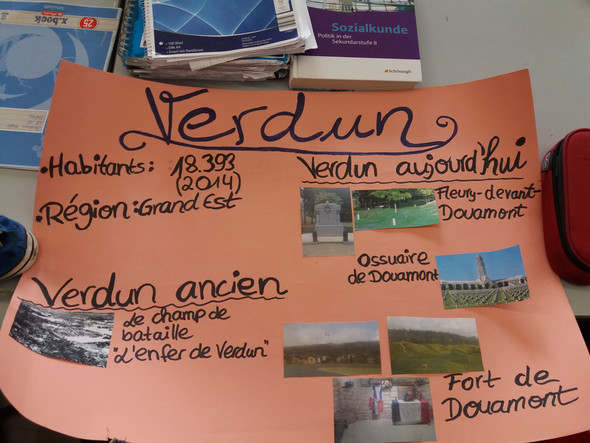 x.book
25
Sozialkunde
Politik in der
Sekundarstufe II
Schöningh
Verdun
• Habitants: 18.393
(2014)
• Région: Grand Est
Verdun aujourd'hui
Fleury-devant-
Douamont
Ossuaire
de Douamont
Verdun ancien
Le champ de
bataille
"L'enfer de Verdun"
Fort de
Douamont